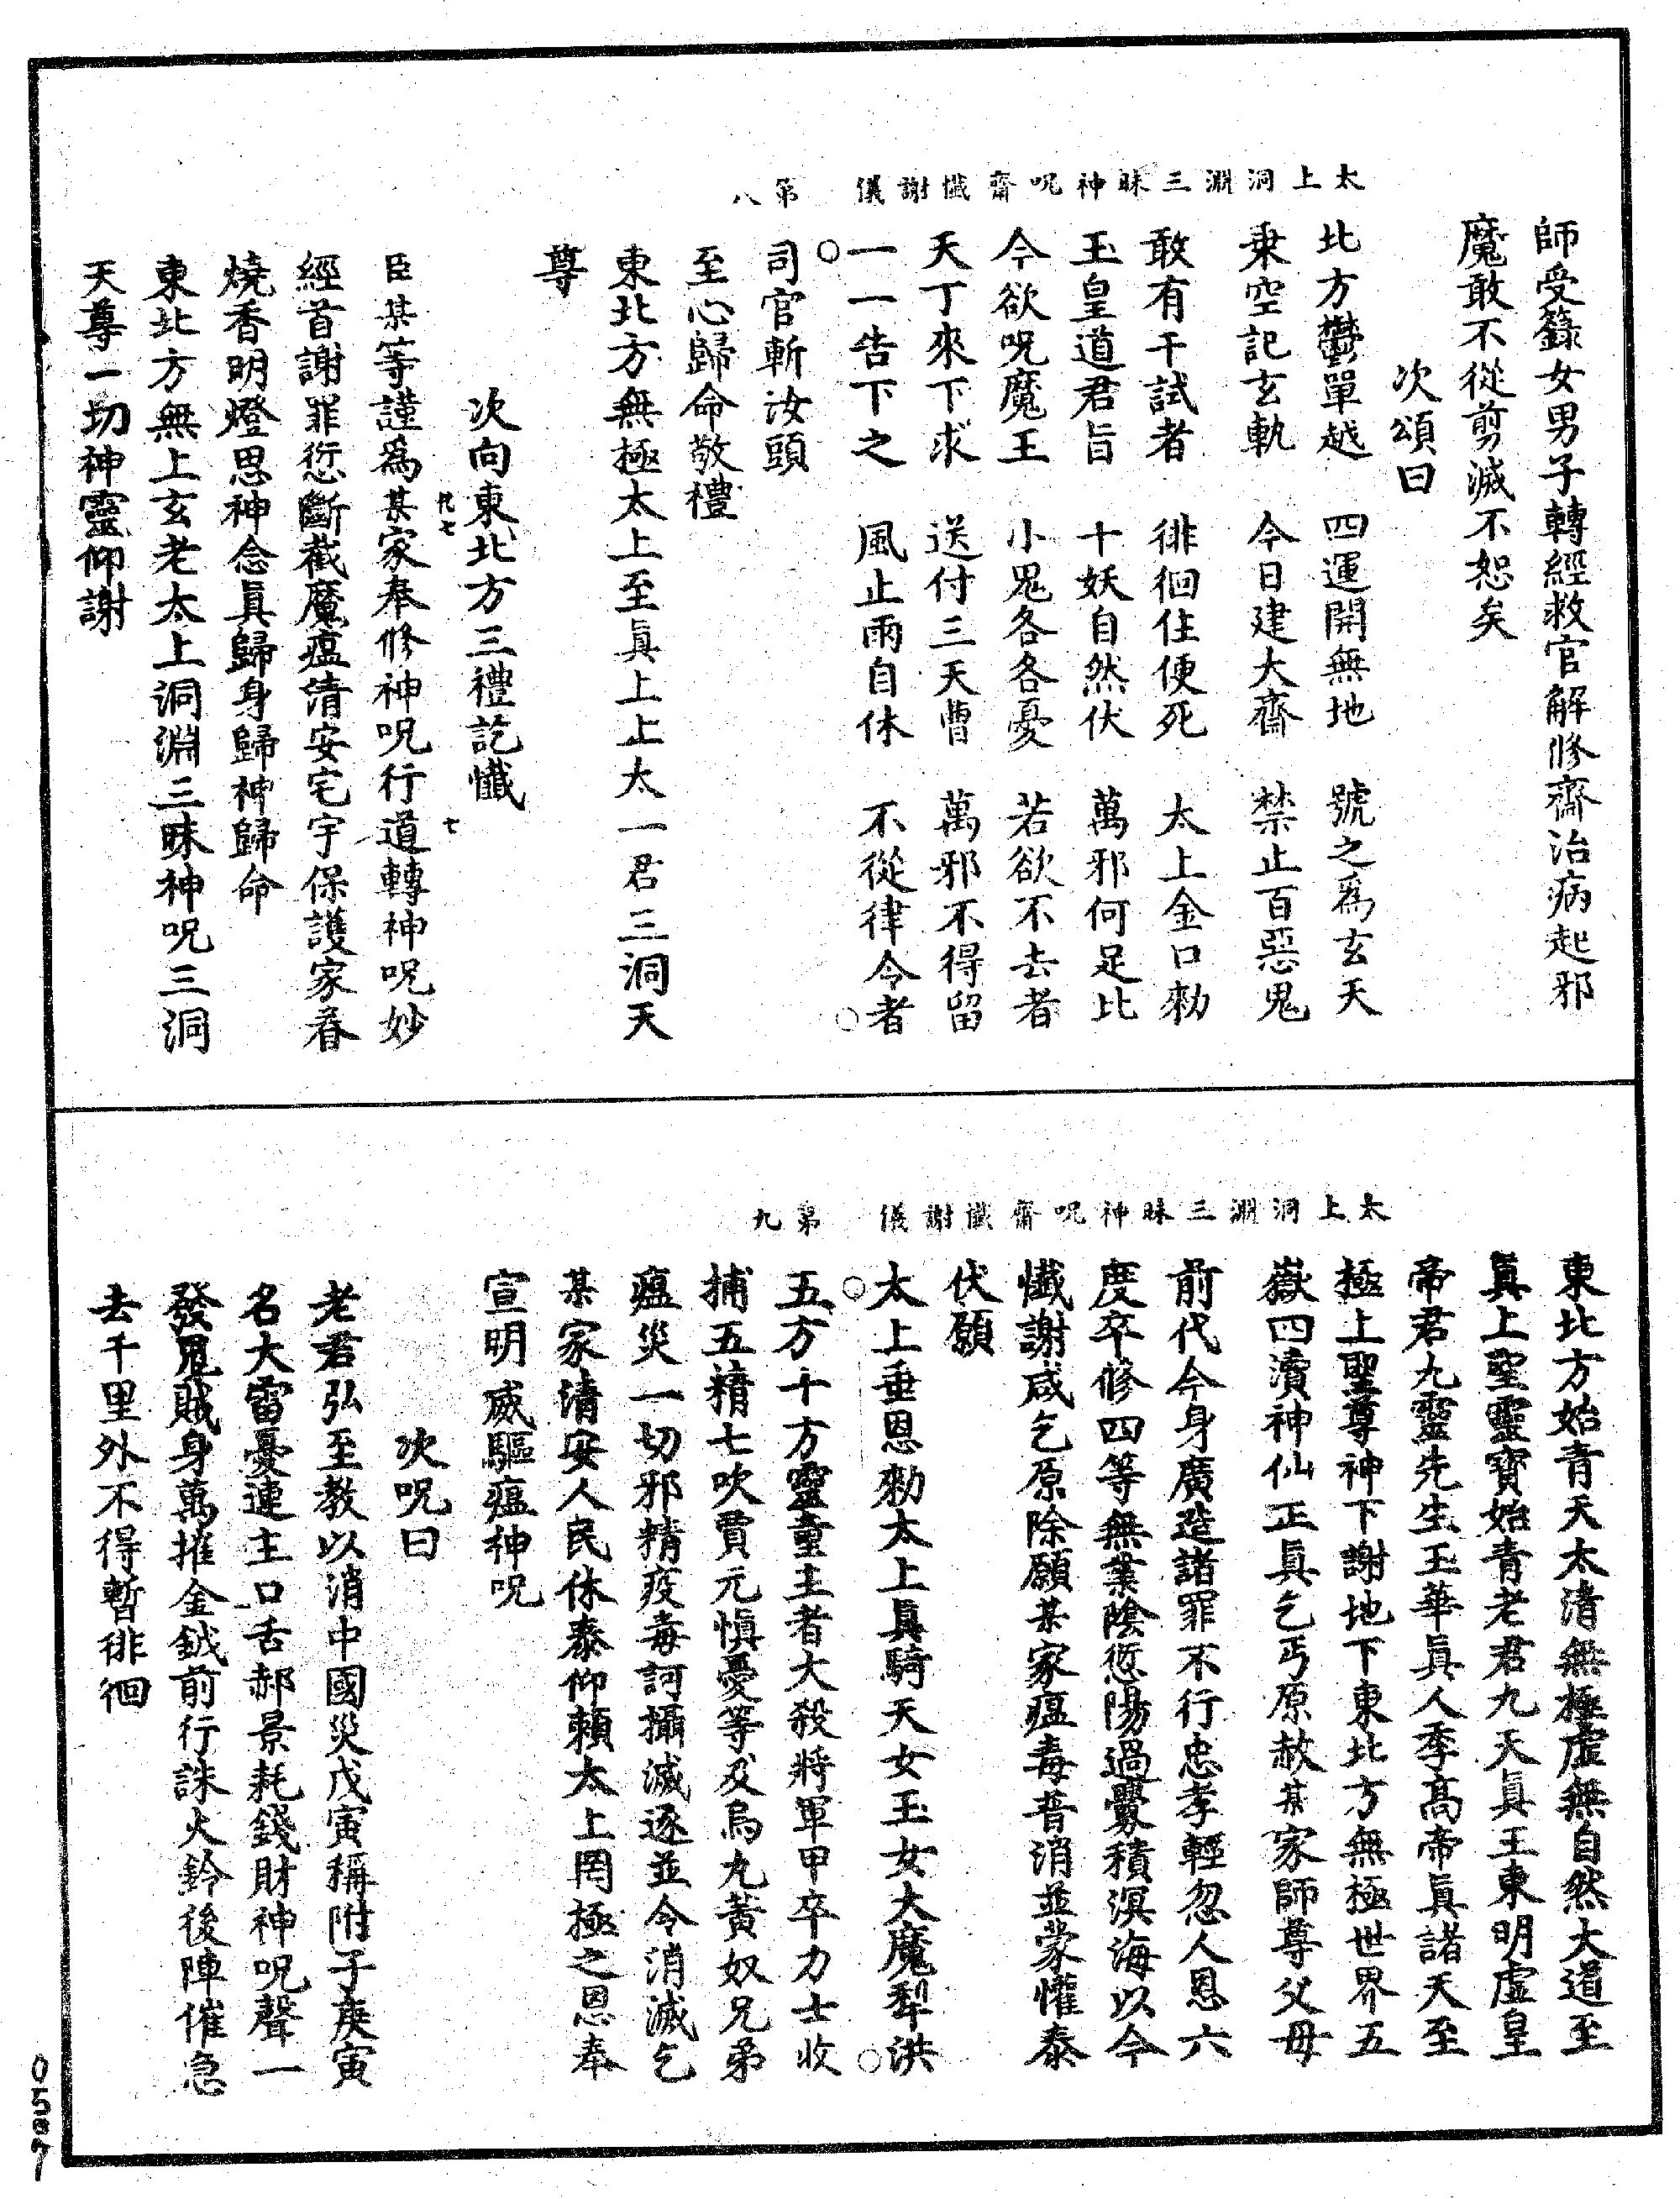 太上洞淵三昧神呪齋懺謝儀　第八
師受籙女男子轉經救官解修齋治病起邪
魔敢不從剪滅不恕矣
次頌曰
北方鬱單越　四運開無地　號之爲玄天
乗空記玄軌　今日建大齋　禁止百惡鬼
敢有干試者　徘徊住便死　太上金口勑
玉皇道君旨　十妖自然伏　萬邪何足比
今欲呪魔王　小鬼各各憂　若欲不去者
天丁來下求　送付三天曹　萬邪不得留
一一告下之　風止雨自休　不從律令者
司官斬汝頭
至心歸命敬禮
東北方無極太上至眞上上太一君三洞天
尊
次向東北方三禮訖懺
臣某等謹爲某家奉修神呪行道轉神呪妙
經首謝罪愆斷截魔瘟清安宅宇保護家眷
燒香明燈思神念眞歸身歸神歸命
東北方無上玄老太上洞淵三昧神呪三洞
天尊一切神靈仰謝
太上洞淵三昧神呪齋懺謝儀　第九
東北方始青天太清無極虛無自然大道至
眞上聖靈寶始青老君九天眞王東明虛皇
帝君九靈先生玉華眞人季髙帝眞諸天至
極上聖尊神下謝地下東北方無極世界五
嶽四瀆神仙正眞乞丐原赦某家師尊父母
前代今身廣造諸罪不行忠孝輕忽人恩六
度卒修四等無業陰愆陽過釁積溟海以今
懺謝咸乞原除願某家瘟毒普消並蒙懽泰
伏願
太上垂恩勑太上眞騎天女玉女大魔犁洪
五方十方靈童主者大殺將軍甲卒力士收
捕五精七吹賈元慎憂等及烏丸黃奴兄弟
瘟災一切邪精疫毒訶攝滅逐並令消滅乞
某家清安人民休泰仰賴太上罔極之恩奉
宣明威驅瘟神呪
次呪曰
老君弘至教以消中國災戊寅稱附子庚寅
名大雷憂連主口舌郝景耗錢財神呪聲一
發鬼賊身萬摧金鉞前行誅火鈴後陣催急
去千里外不得暫徘徊